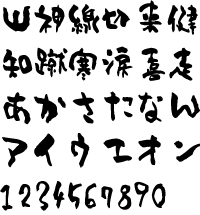 山神線也来健
知蹴寒涼喜走
あかさたなん
アイウエオン
1234567890